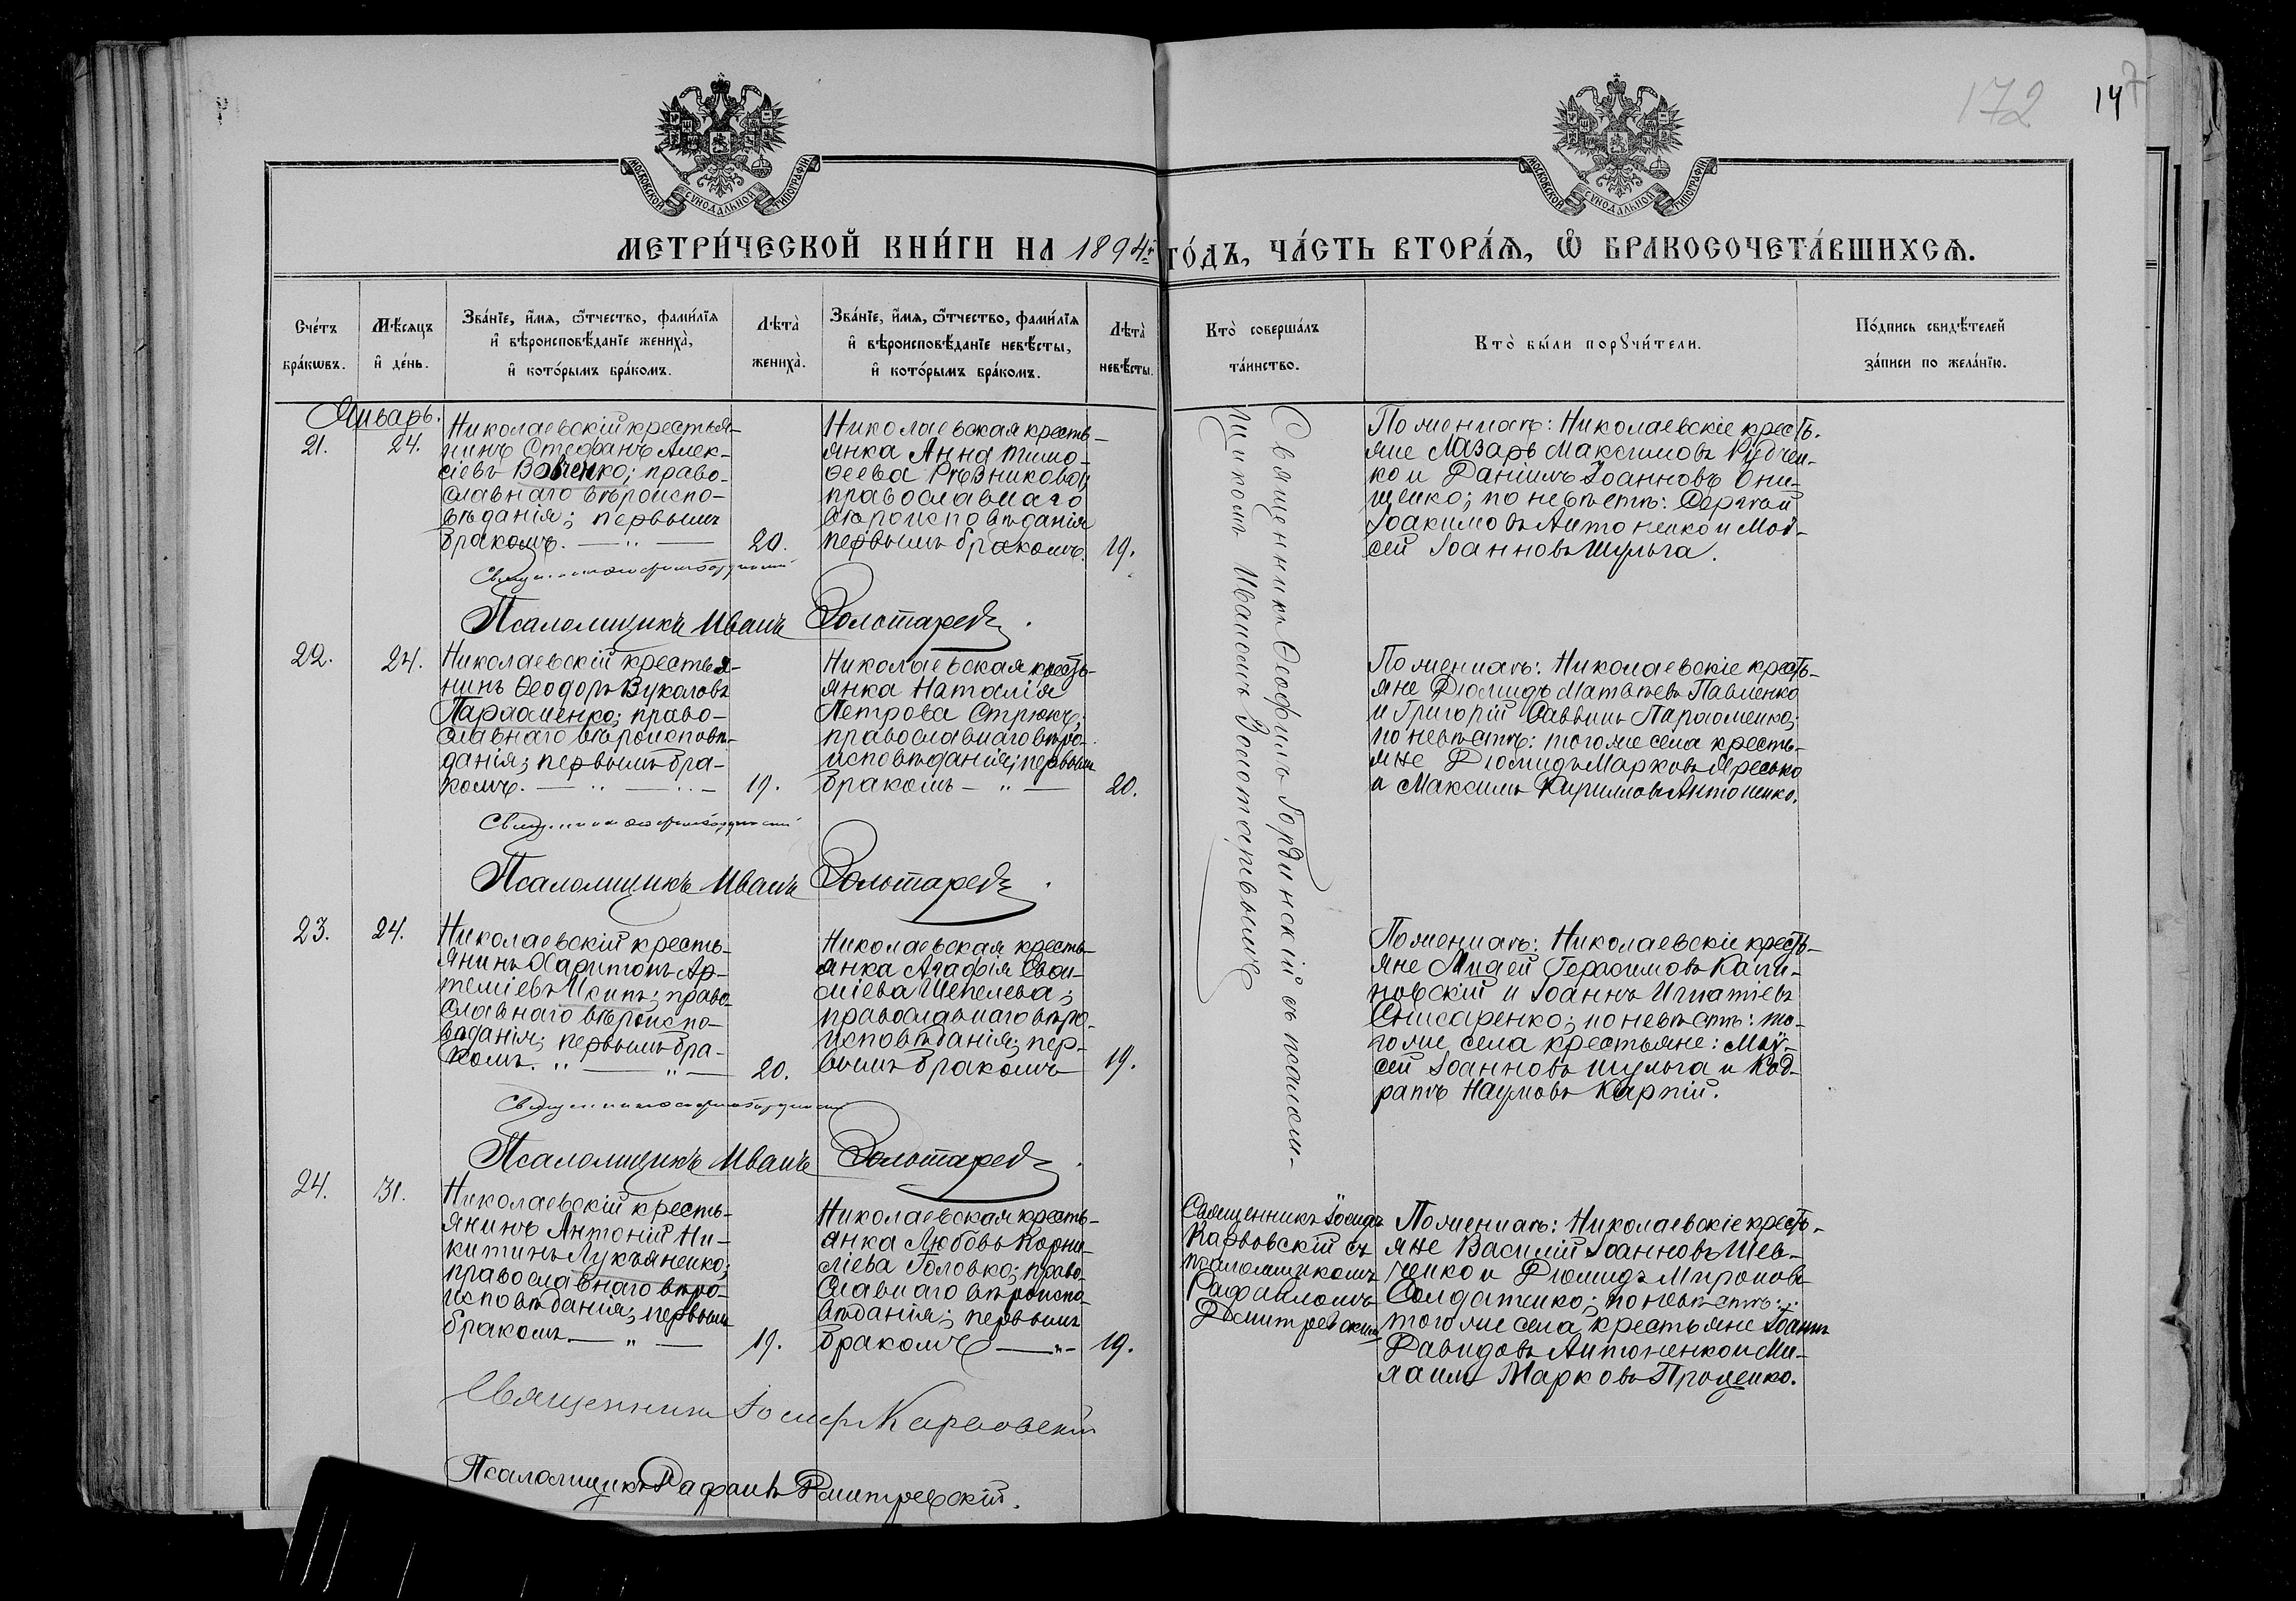 172 147
МОСКОВСКОЙ СУНОДАЛЬНОЙ ТИПОГРАФІИ
МОСКОВСКОЙ СУНОДАЛЬНОЙ ТИПОГРАФІИ
МЕТРИ́ЧЕСКОЙ КНИ́ГИ НА 1894й ГО́ДЪ, ЧА́СТЬ ВТОРА́Ѧ, Ѽ БРАКОСОЧЕТА́ВШИХСѦ.
Сче́тъ
бра́кѡвъ.
Мѣ́сѧцъ
и҆ де́нь.
Зва́нїе, и҆́мѧ, ѻ҆́тчество, фами́лїѧ
и҆ вѣроисповѣ́данїе жениха̀,
и҆ кото́рымъ бра́комъ.
Лѣта̀
жениха̀.
Зва́нїе, и҆́мѧ, ѻ҆́тчество, фами́лїѧ
и҆ вѣроисповѣ́данїе невѣ́сты,
и҆ кото́рымъ бра́комъ.
Лѣта̀
невѣ́сты.
Кто̀ соверша́лъ
та́инство.
Кто̀ бы́ли порꙋчи́тели.
По́дпись свидѣ́телей
за́писи по жела́нїю.
Январь.
21.
24.
Николаевскій крестья-
нинъ Стефанъ Алек-
сіевъ Вовченко; право-
славнаго вѣроиспо-
вѣданія; первымъ
бракомъ.
20.
Николаевская кресть-
янка Анна Тимо-
ѳеева Рѣзникова;
православнаго
вѣроисповѣданія
первымъ бракомъ.
19.
Священникъ Ѳеофилъ Гординскій съ псалом-
щикомъ Иваномъ Золотаревымъ
По женихѣ: Николаевскіе кресть-
яне Лазарь Максимовъ Рудчен-
ко и Даніилъ Іоанновъ Они-
щенко; по невѣстѣ: Сергѣй
Іоакимовъ Антоненко и Мой-
сей Іоанновъ Шульга.
Псаломщикъ Иванъ Золотаревъ.
22.
24.
Николаевскій крестья-
нинъ Ѳеодоръ Вуколовъ
Пархоменко; право-
славнаго вѣроисповѣ-
данія; первымъ бра-
комъ.
19.
Николаевская кресть-
янка Наталія
Петрова Стрюкъ;
православнаго вѣро-
исповѣданія; первымъ
бракомъ
20.
По женихѣ: Николаевскіе кресть-
яне Діомидъ Матвѣевъ Павленко
и Григорій Саввинъ Пархоменко;
по невѣстѣ: того же села кресть-
яне Діомидъ Марковъ Яресько
и Максимъ Кирилловъ Антоненко.
Псаломщикъ Иванъ Золотаревъ.
23.
24.
Николаевскій кресть-
янинъ Харитонъ Ар-
теміевъ Исипъ; право-
славнаго вѣроиспо-
вѣданія; первымъ бра-
комъ.
20.
Николаевская кресть-
янка Агафія Евѳи-
міева Шепелева;
православнаго вѣро-
исповѣданія; пер-
вымъ бракомъ
19.
По женихѣ: Николаевскіе кресть-
яне Мидей Герасимовъ Кали-
новскій и Іоаннъ Игнатіевъ
Снисаренко; по невѣстѣ: то-
го же села крестьяне: Мой-
сей Іоанновъ Шульга и Код-
ратъ Наумовъ Карпій.
Псаломщикъ Иванъ Золотаревъ.
24.
31.
Николаевскій кресть-
янинъ Антоній Ни-
китинъ Лукъяненко;
православнаго вѣро-
исповѣданія; первымъ
бракомъ.
19.
Николаевская кресть-
янка Любовь Корни-
ліева Головко; право-
славнаго вѣроиспо-
вѣданія; первымъ
бракомъ
19.
Священникъ Іосифъ
Карповскій съ
псаломщикомъ
Рафаиломъ
Дмитревскимъ
По женихѣ: Николаевскіе кресть-
яне Василій Іоанновъ Шев-
ченко и Діомидъ Мироновъ
Солдатенко; по невѣстѣ:
того же села крестьяне Іоаннъ
Давидовъ Антоненко и Ми-
хаилъ Марковъ Проценко.
Священникъ Іосифъ Карповскій
Псаломщикъ Рафаилъ Дмитревскій.